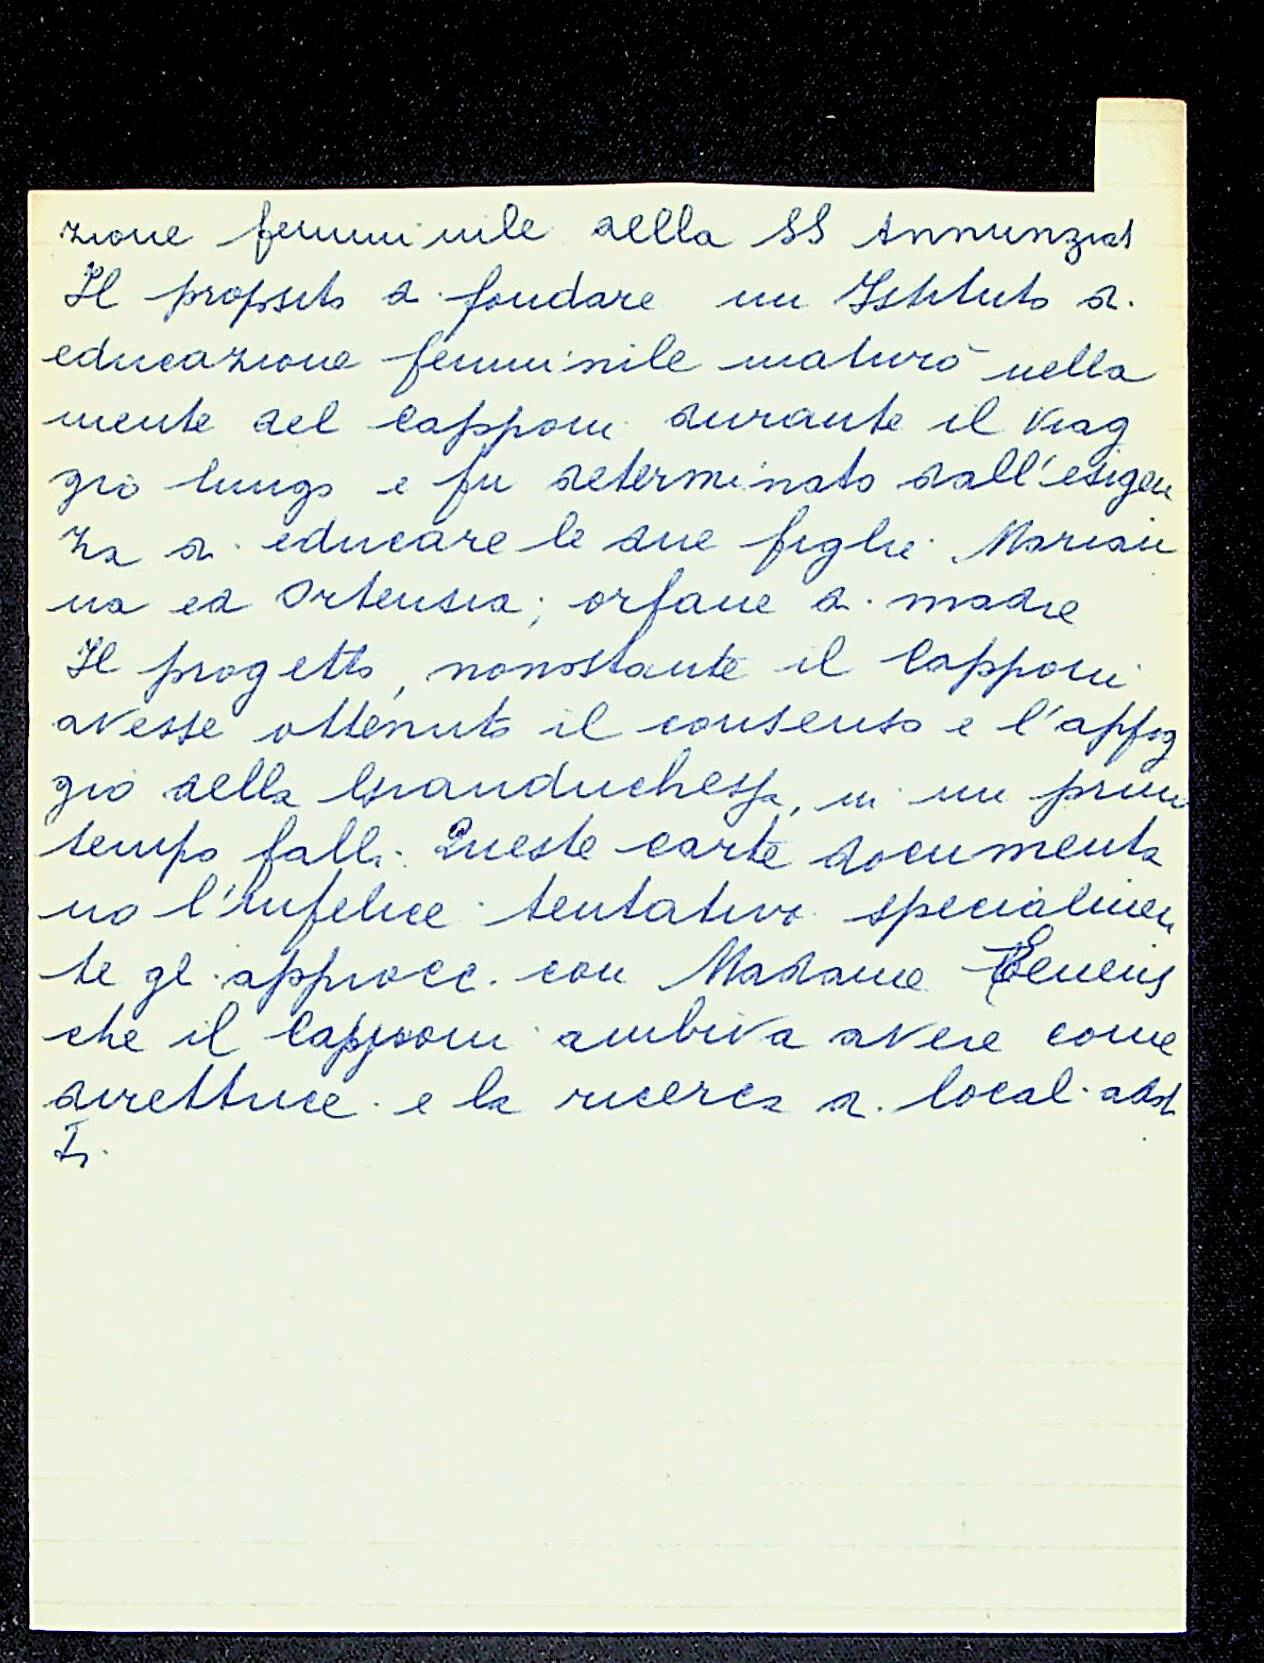 zione femminile della SS Annunziat
Il proposito di fondare un Istituto di
educazione femminile maturò nella
mente del Capponi durante il viag
gio lungo e fu determinato dall'esigen
za di educare le sue figlie Marian
na ed Ortensia; orfane di madre
Il progetto, nonostante il Capponi
avesse ottenuto il consenso e l'appog
gio della Granduchessa, in un primo
tempo fallì. Queste carte documenta
no l'infelice tentativo specialmen
te gli approcci con Madame
che il Capponi ambiva avere come
direttrice e la ricerca di locali adat
ti.